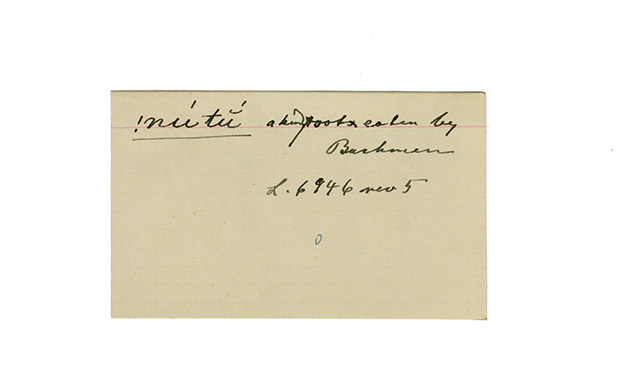 !núĭtú' a kind of root eaten by
Bushmen
L. 6946 rev 5